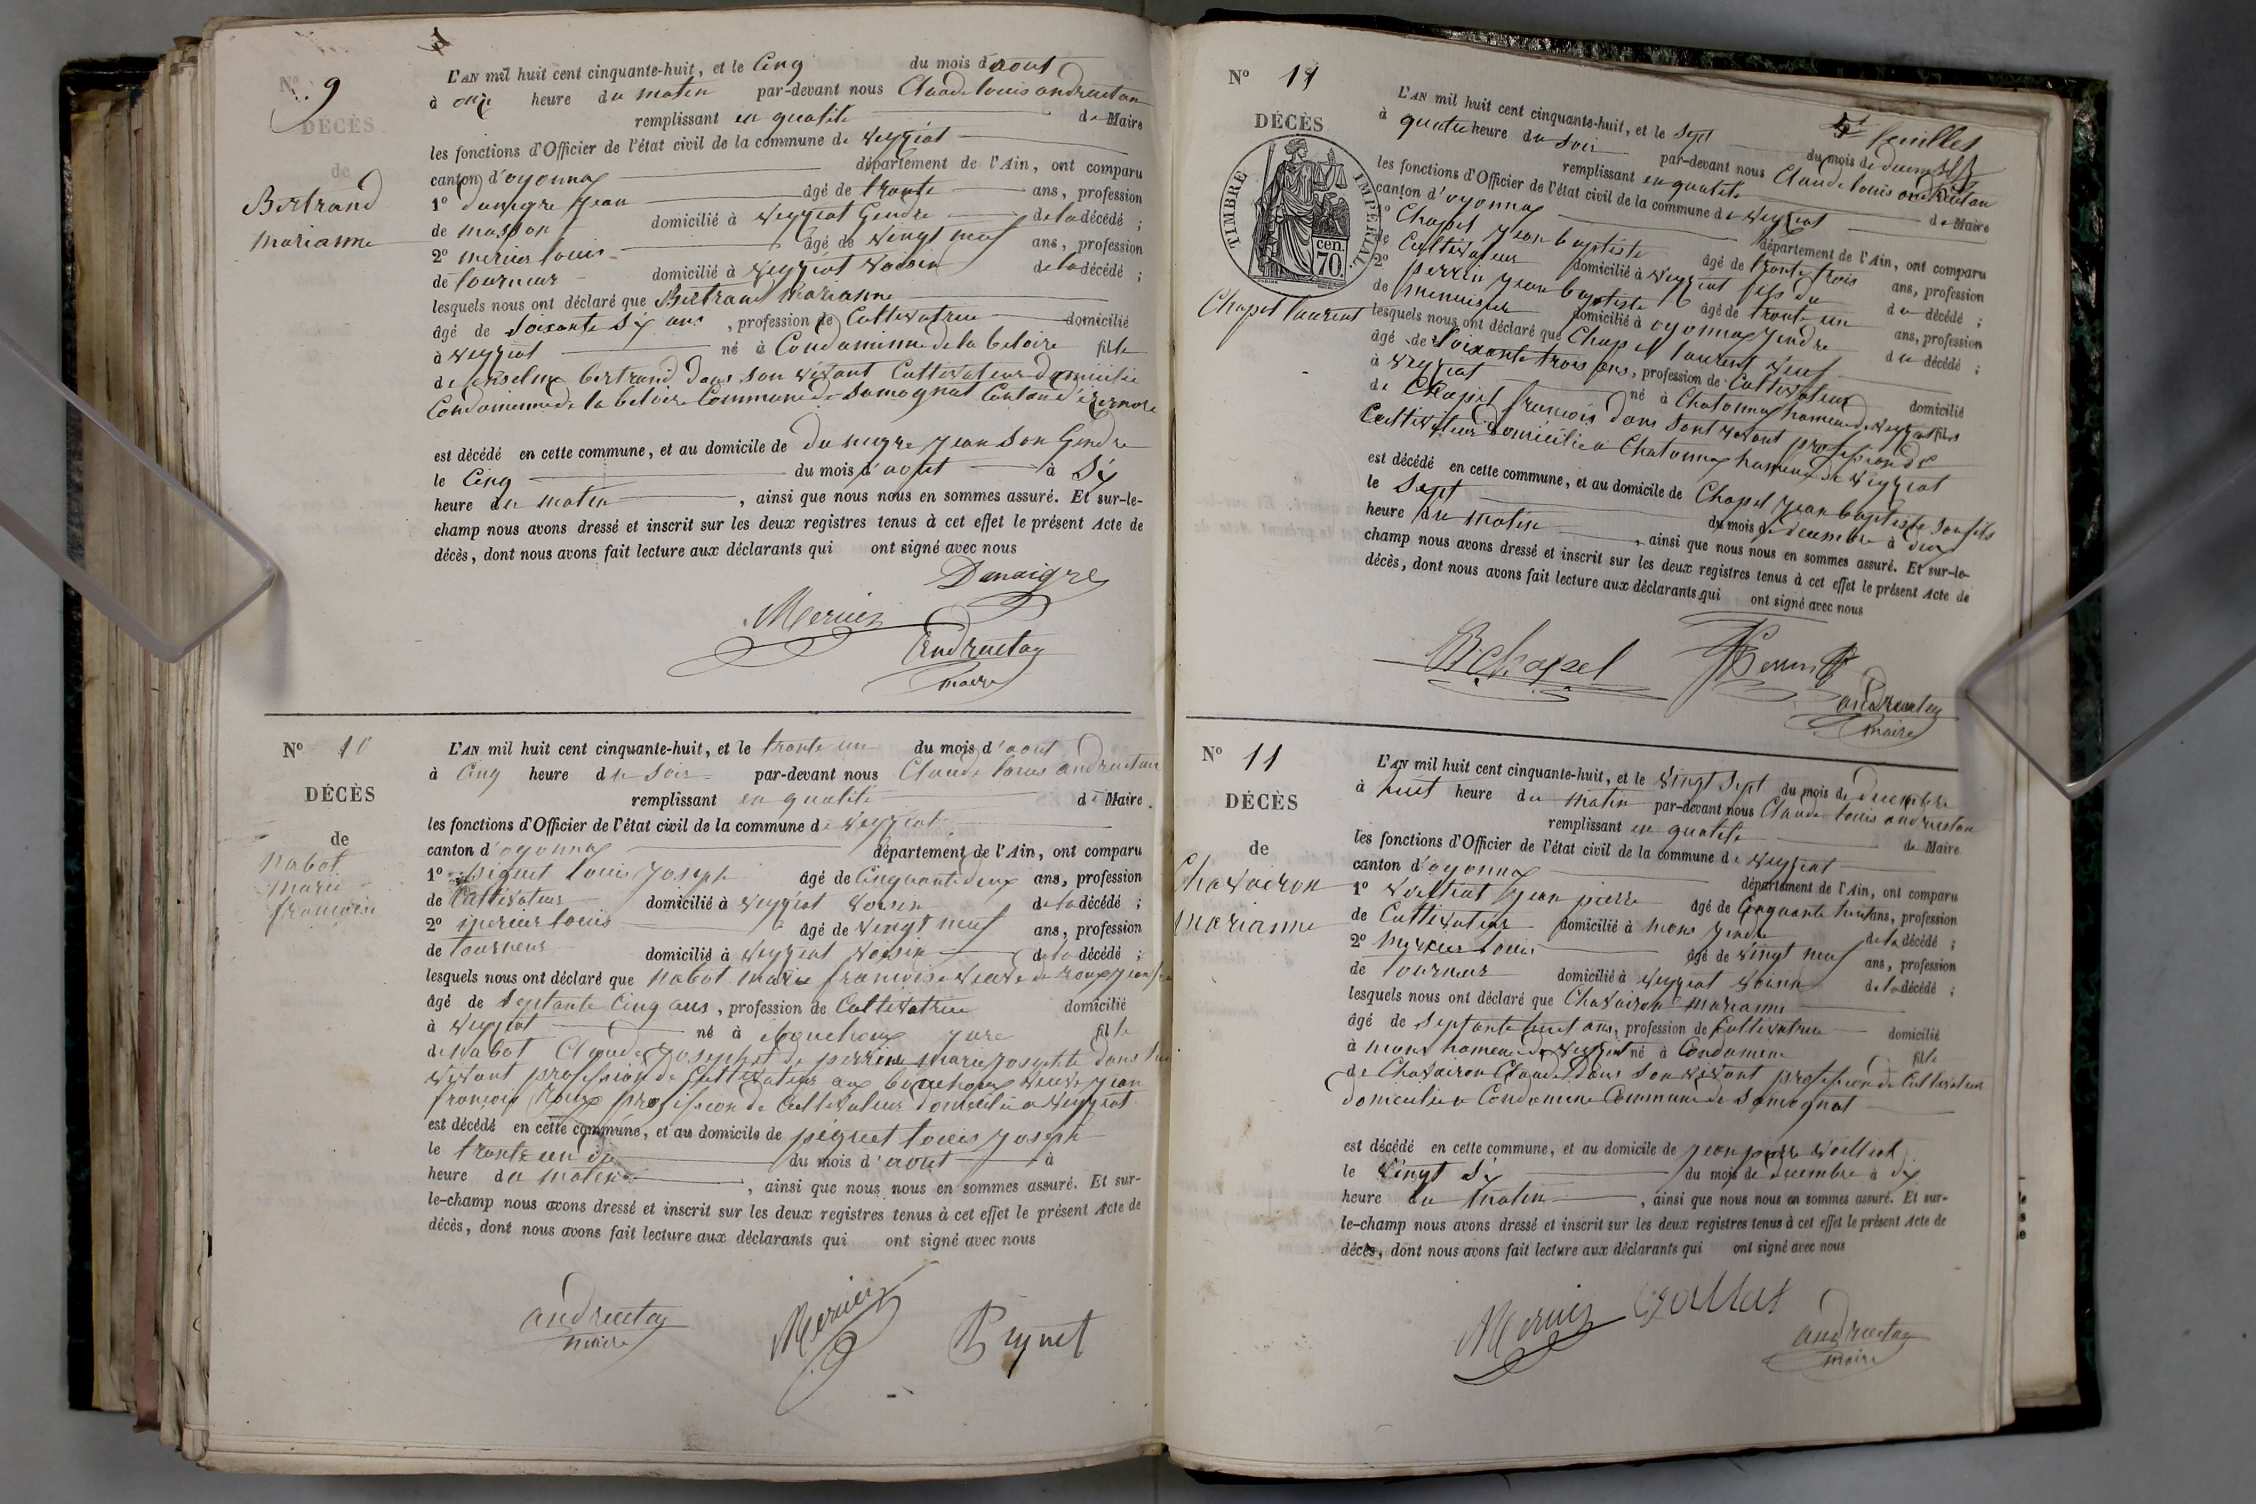 Nº 9
DÉCÈS
de
Bertrand
marianne
L'AN mil huit cent cinquante-huit, et le Cinq du mois d'aout
à onze heure du matin par-devant nous Claude louis andruetan
remplissant en qualité de Maire
les fonctions d'Officier de l'état civil de la commune de Veyziat
canton d'oyonnax département de l'Ain, ont comparu
1º danegre jean âgé de trente ans, profession
de masson domicilié à Veyziat Gendre de la décédé ;
2º mercier louis âgé de Vingt neuf ans, profession
de tourneur domicilié à Veyziat Voisin de la décédé ;
lesquels nous ont déclaré que Bertrand Marianne
âgé de Soixante Six ans, profession de Cultivatrice domicilié
à Veyziat né à Condaminne de la beloire fille
de anselme bertrand Dans son vivant Cultivateur domicilié
Condaminne de la beloire Commune de Samognat Canton d'izernore
est décédé en cette commune, et au domicile de danegre jean Son Gendre
le Cinq du mois d'aout à Six
heure du matin, ainsi que nous nous en sommes assuré. Et sur-le-
champ nous avons dressé et inscrit sur les deux registres tenus à cet effet le présent Acte de
décès, dont nous avons fait lecture aux déclarants qui ont signé avec nous
Danaigre
Mercier
Andruetan
maire
Nº 10
DÉCÈS
de
Nabot
Marie
françoise
L'AN mil huit cent cinquante-huit, et le trente un du mois d'aout
à Cinq heure du Soir par-devant nous Claude louis andruetan
remplissant en qualité de Maire.
les fonctions d'Officier de l'état civil de la commune de Veyziat
canton d'oyonnax département de l'Ain, ont comparu
1º piquet louis joseph âgé de Cinquante deux ans, profession
de Cultivateur domicilié à Veyziat Voisin de la décédé ;
2º mercier louis âgé de Vingt neuf ans, profession
de tourneur domicilié à Veyziat Voisin de la décédé ;
lesquels nous ont déclaré que Nabot Marie françoise Veuve de roux jean
âgé de Septante Cinq ans, profession de Cultivatrice domicilié
à Veyziat né à bouchoux jura fille
de Nabot Claude joseph et de perrin Marie josephte dans
vivant profession de Cultivateur aux bouchoux veuve jean
françois Roux profission de Cultivateur domicilié a Veyziat
est décédé en cette commune, et au domicile de piquet louis joseph
le trente un du mois d'aout à
heure du matin, ainsi que nous nous en sommes assuré. Et sur-
le-champ nous avons dressé et inscrit sur les deux registres tenus à cet effet le présent Acte de
décès, dont nous avons fait lecture aux déclarants qui ont signé avec nous
andruetan
maire
Mercier
Piquet
5e feuillet
Nº 11
DÉCÈS
TIMBRE IMPÉRIAL
cen.
70.
Chapel laurent
L'AN mil huit cent cinquante-huit, et le Sept du mois de decembre
à quatre heure du Soir par-devant nous Claude louis andruetan
remplissant en qualité de Maire
les fonctions d'Officier de l'état civil de la commune de Veyziat
canton d'oyonnax département de l'Ain, ont comparu
1º Chapel jean baptiste âgé de trente trois ans, profession
de Cultivateur domicilié à Veyziat fils du du décédé ;
2º perrin jean baptiste âgé de trente un ans, profession
de menuisier domicilié à oyonnax gendre du décédé ;
lesquels nous ont déclaré que Chapel laurent Veuf
âgé de Soixante trois ans, profession de Cultivateur domicilié
à Veyziat né à Chatonnax hameau de Veyziat fils
de Chapel françois dans sont vivant profession de
Cultivateur domicilié a Chatonnax hameau de Veyziat
est décédé en cette commune, et au domicile de Chapel jean baptiste Son fils
le Sept du mois de decembre à deux
heure du matin, ainsi que nous nous en sommes assuré. Et sur-le-
champ nous avons dressé et inscrit sur les deux registres tenus à cet effet le présent Acte de
décès, dont nous avons fait lecture aux déclarants qui ont signé avec nous
B. Chapel
Perrin
andruetan
maire
Nº 11
DÉCÈS
de
Chavairon
marianne
L'AN mil huit cent cinquante-huit, et le Vingt Sept du mois de decembre
à huit heure du matin par-devant nous Claude louis andruetan
remplissant en qualité de Maire
les fonctions d'Officier de l'état civil de la commune de Veyziat
canton d'oyonnax département de l'Ain, ont comparu
1º jean pierre âgé de Cinquante huit ans, profession
de Cultivateur domicilié à mons gendre de la décédé ;
2º Mercier louis âgé de Vingt neuf ans, profession
de tourneur domicilié à Veyziat Voisin de la décédé ;
lesquels nous ont déclaré que Chavairon marianne
âgé de Septante huit ans, profession de Cultivatrice domicilié
à mons hameau de Veyziat né à Condamine fille
de Chavairon Claude dans son vivant profession de Cultivateur
domicilié a Condamine Commune de Samognat
est décédé en cette commune, et au domicile de jean pierre
le Vingt Six du mois de decembre à dix
heure du matin, ainsi que nous nous en sommes assuré. Et sur-
le-champ nous avons dressé et inscrit sur les deux registres tenus à cet effet le présent Acte de
décès, dont nous avons fait lecture aux déclarants qui ont signé avec nous
Mercier
andruetan
maire